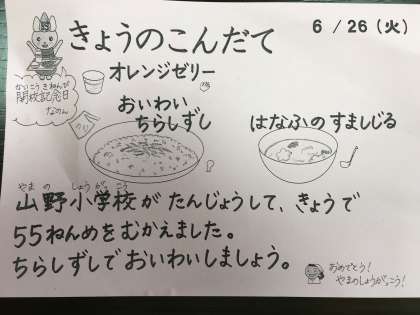 きょうのこんだて
6/26(火)
オレンジゼリー
かいこうきねんび
開校記念日
なのん
おいわい
ちらしずし
のり
はなふのすましじる
やまの しょうがっこう
山野小学校が たんじょうして、きょうで
55ねんめをむかえました。
ちらしずしでおいわいしましょう。
おめでとう!
やまのしょうがっこう!